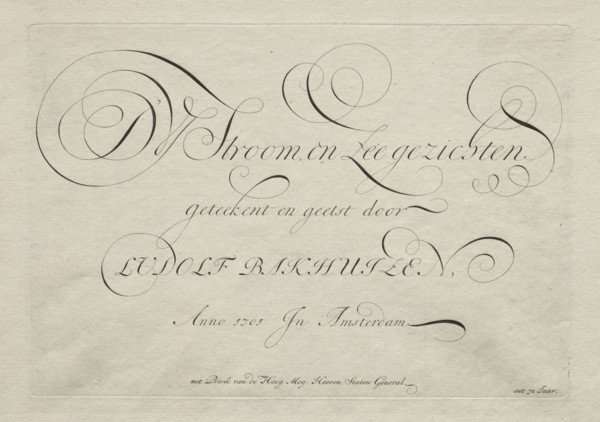 D'Y Stroom, en Zee gezichten
geteekent en geetst door
LUDOLF BAKHUIZEN,
Anno 1701 In Amsterdam
met Privil van de Hoog Mog. Heeren Staten General
aet 71 Jaar.